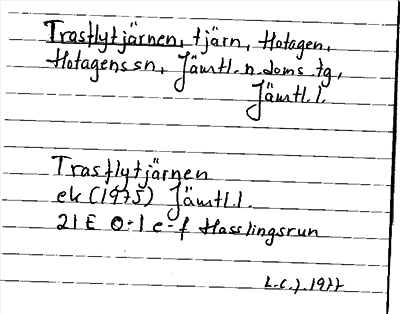 Trasflytjärnen, tjärn, Hotagen,
Hotagens sn, Jämtl. n. doms. tg,
Jämtl. l.
Trasflytjärnen
ek (1975) Jämtl. l.
21 E 0-1 e-f Hasslingsrun
L.C.J. 1977